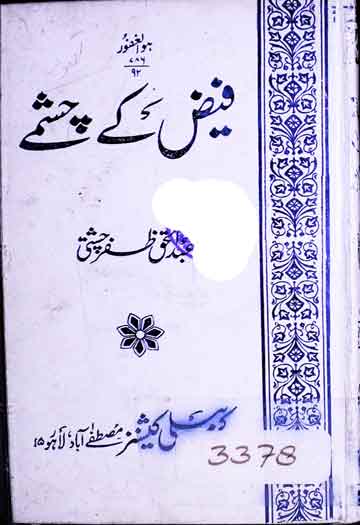 ہوالغفور
۷۸۶
۹۲
فیض کے چشمے
عبدالحق ظفر چشتی
پبلی کیشنز مصطفےٰ آباد، لاہور ۱۵
3378